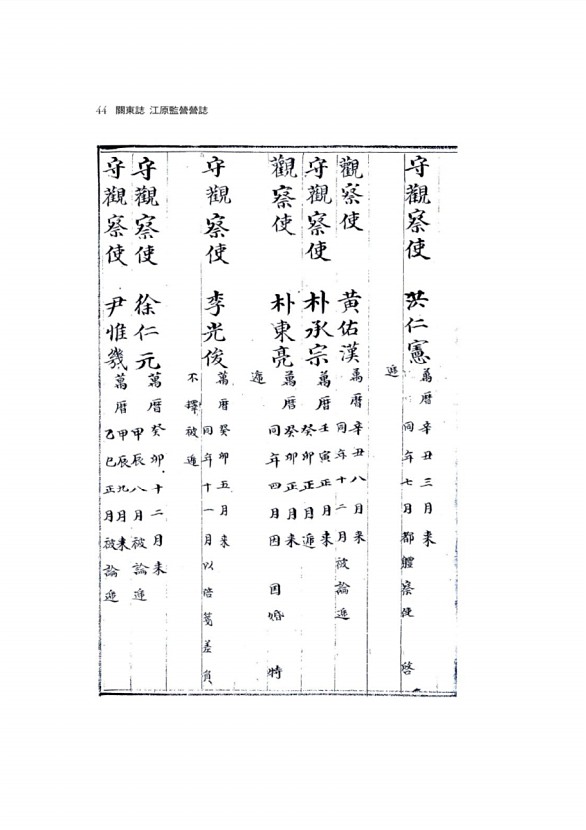 44 關東誌 江原監營營誌
守觀察使 洪仁憲 萬曆辛丑三月来
同年七月都體察使 啓
遞
觀察使 黃佑漢 萬曆辛丑八月来
同年十二月被論遞
守觀察使 朴承宗 萬曆壬寅正月来
癸卯正月遞
觀察使 朴東亮 萬曆癸卯正月来
同年四月因 婚 特
遞
守觀察使 李光俊 萬曆癸卯五月来
同年十一月以陪箋差員
不擇被遞
守觀察使 徐仁元 萬曆癸卯十二月来
甲辰八月被論遞
守觀察使 尹惟幾 萬曆甲辰九月来
乙巳正月被論遞